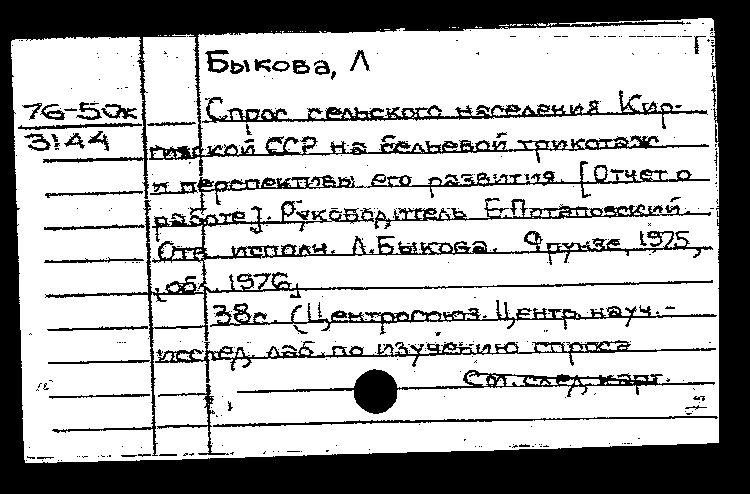 Быкова, Л
76-50ж
3144
Спрос сельского населения Кир-
гизской ССР на бельевой трикотаж
и перспективы его развития. [Отчет о
работе]. Руководитель Е.Потаповский.
Отв. исполн. Л.Быкова. Фрунзе, 1975,
[обл. 1976]
38с. (Центросоюз. Центр. науч.-
исслед. лаб. по изучению спроса
См. след. карт.